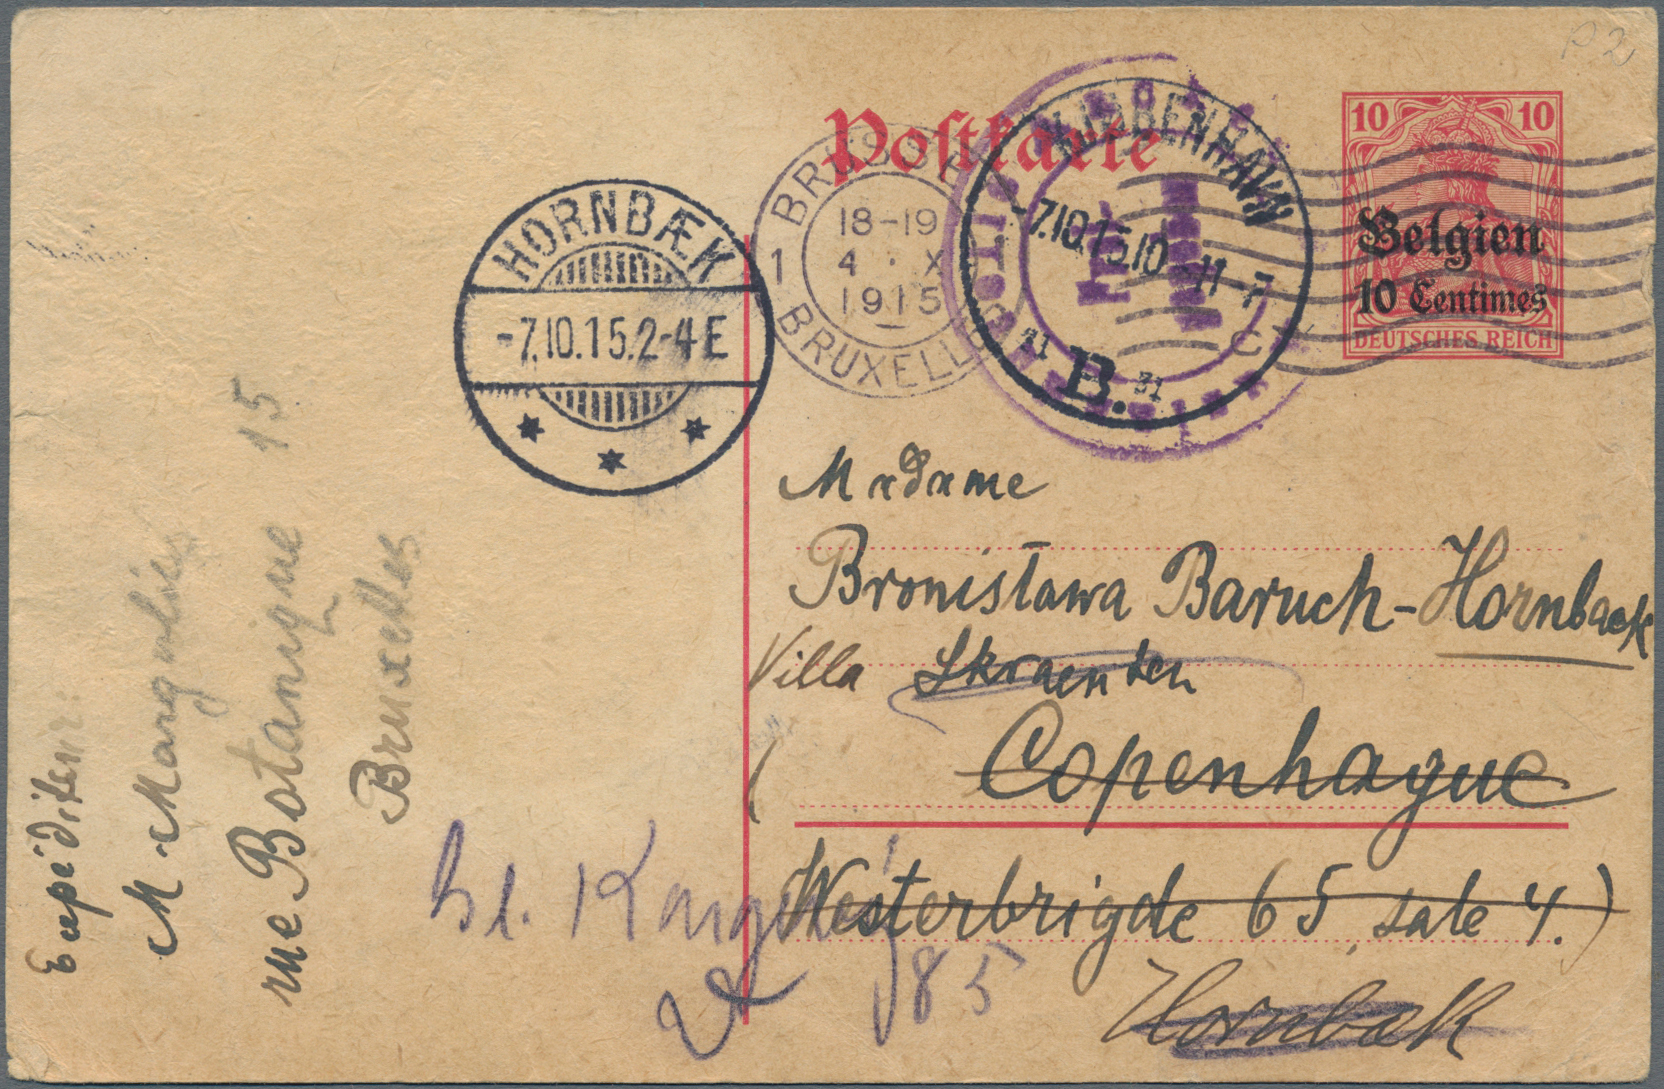 P2
Postkarte
10 10
Belgien
10 Centimes
DEUTSCHES REICH
BRÜSSEL
18-19
4 · X
1915
1
BRUXELLES
KJØBENHAVN
-7.10.15.10-11 F
B.
HORNBÆK
-7.10.15.2-4 E
Madame
Bronisława Baruch-Hornbaek
Villa Skraenten
Copenhague
(Westerbrigde 65, sale 4.)
Hornbæk
85
Expéditeur:
M.
rue Botanique 15
Bruxelles